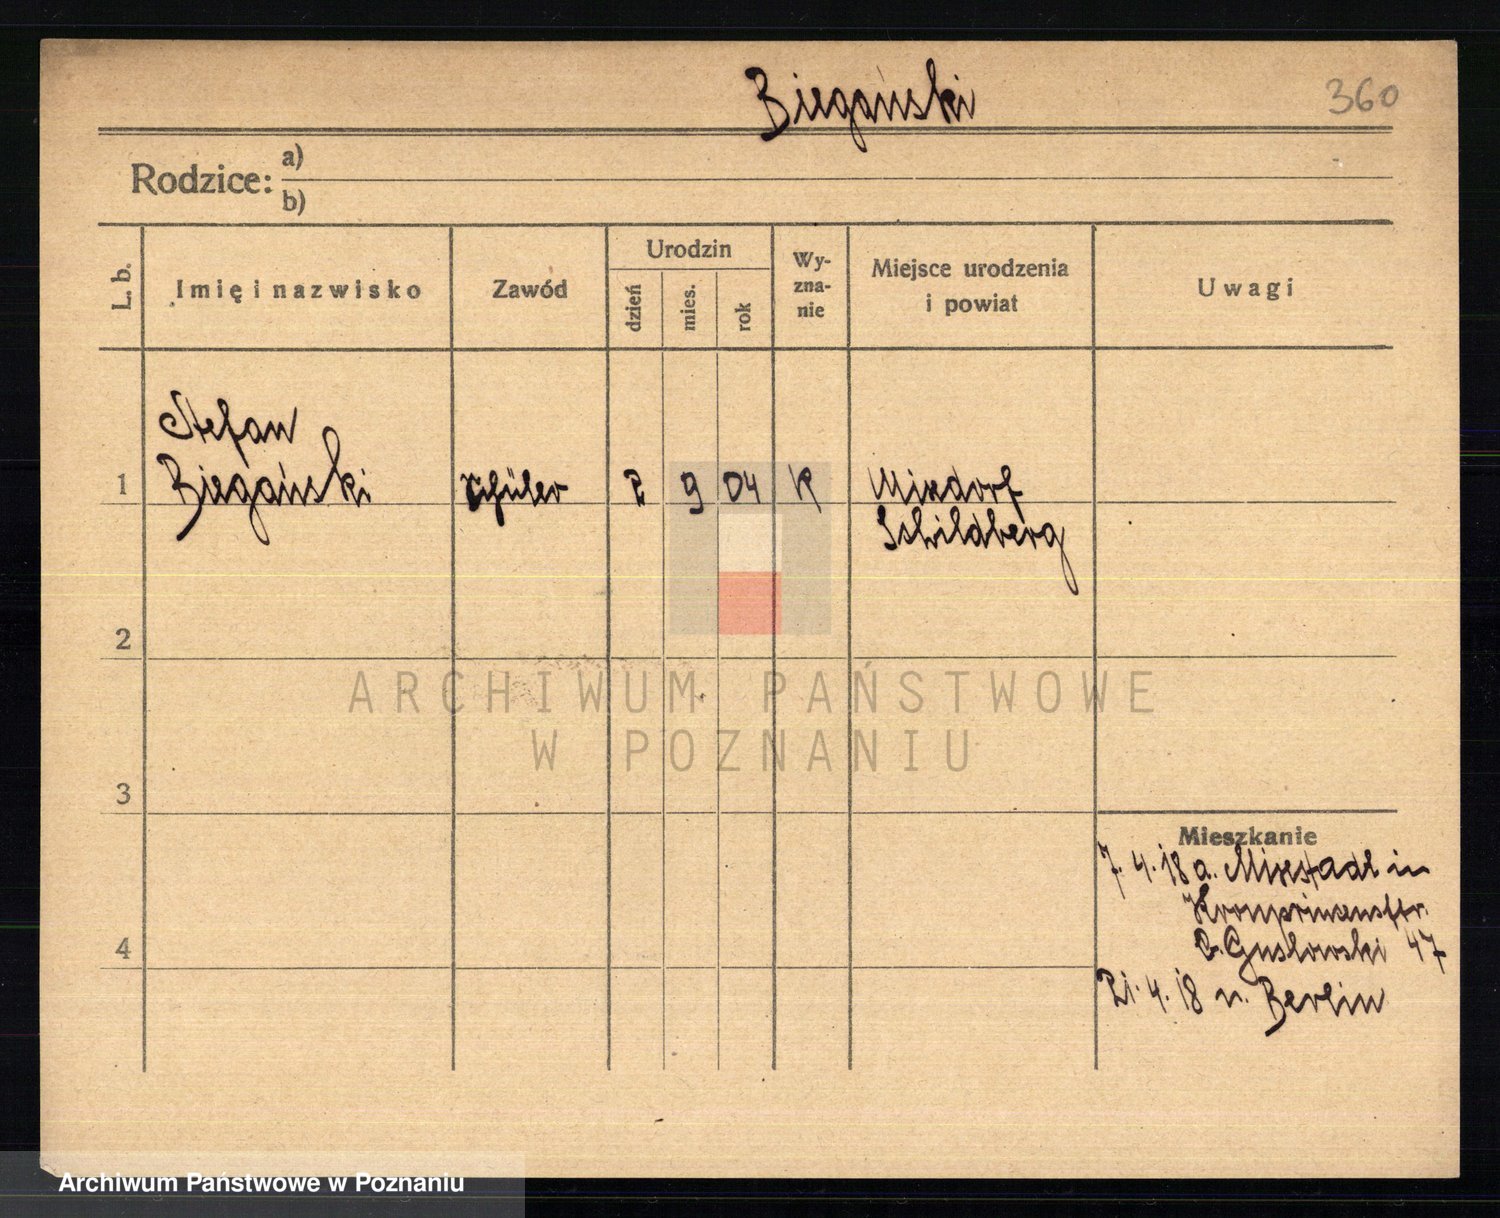 Biegański
360
Rodzice: a)
b)
L. b.
Imię i nazwisko
Zawód
Urodzin
dzień
mies.
rok
Wy-
zna-
nie
Miejsce urodzenia
i powiat
Uwagi
Stefan
1 Biegański Schüler 2 9 04 K Mixdorf
Schildberg
2
ARCHIWUM PAŃSTWOWE
W POZNANIU
3
Mieszkanie
7. 4. 18 a. Mixstadt in
Kronprinzenstr.
b. Guslowski 47
4
21. 4. 18 n. Berlin
Archiwum Państwowe w Poznaniu